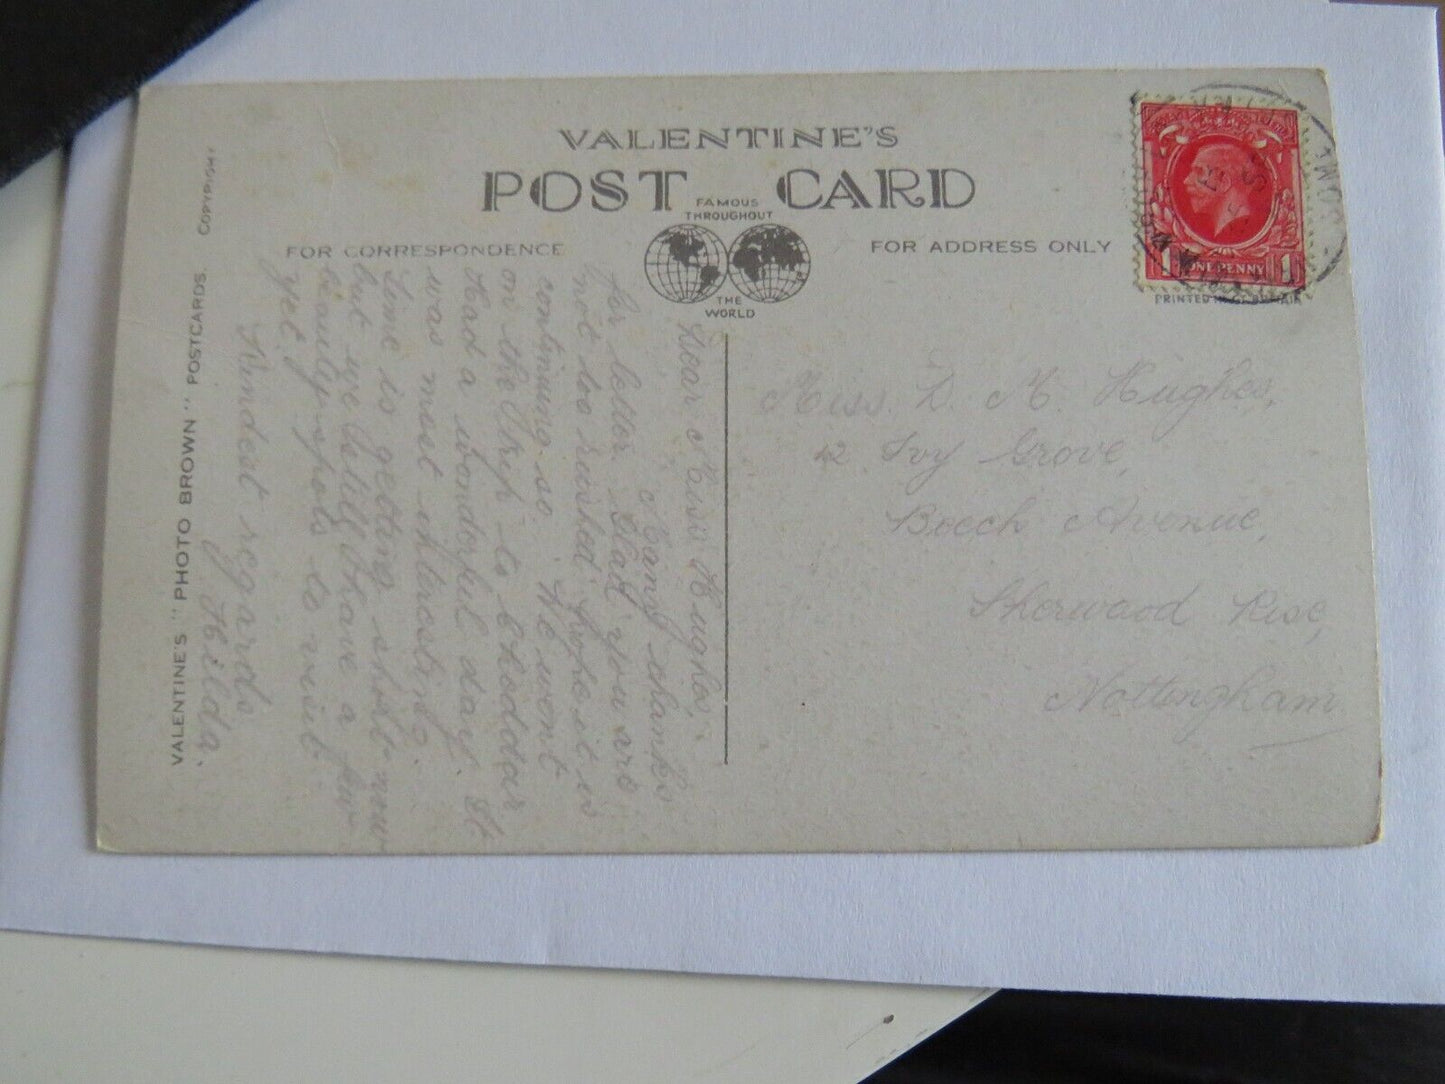 VALENTINE'S
POST CARD
FAMOUS
THROUGHOUT
THE
WORLD
FOR CORRESPONDENCE
FOR ADDRESS ONLY
VALENTINE'S "PHOTO BROWN" POSTCARDS. COPYRIGHT
PRINTED IN GT. BRITAIN
1 ONE PENNY 1
Dear Miss Hughes,
Many thanks
for letter. Glad you are
not too rushed, hope it is
continuing so. We went
on the trip to Cheddar
Had a wonderful day. It
was most interesting.
Time is getting short now
but we still have a few
beauty-spots to visit
yet.
Kindest regards
Hilda.
Miss. D. M. Hughes,
2 Ivy Grove,
Beech Avenue,
Sherwood Rise,
Nottingham